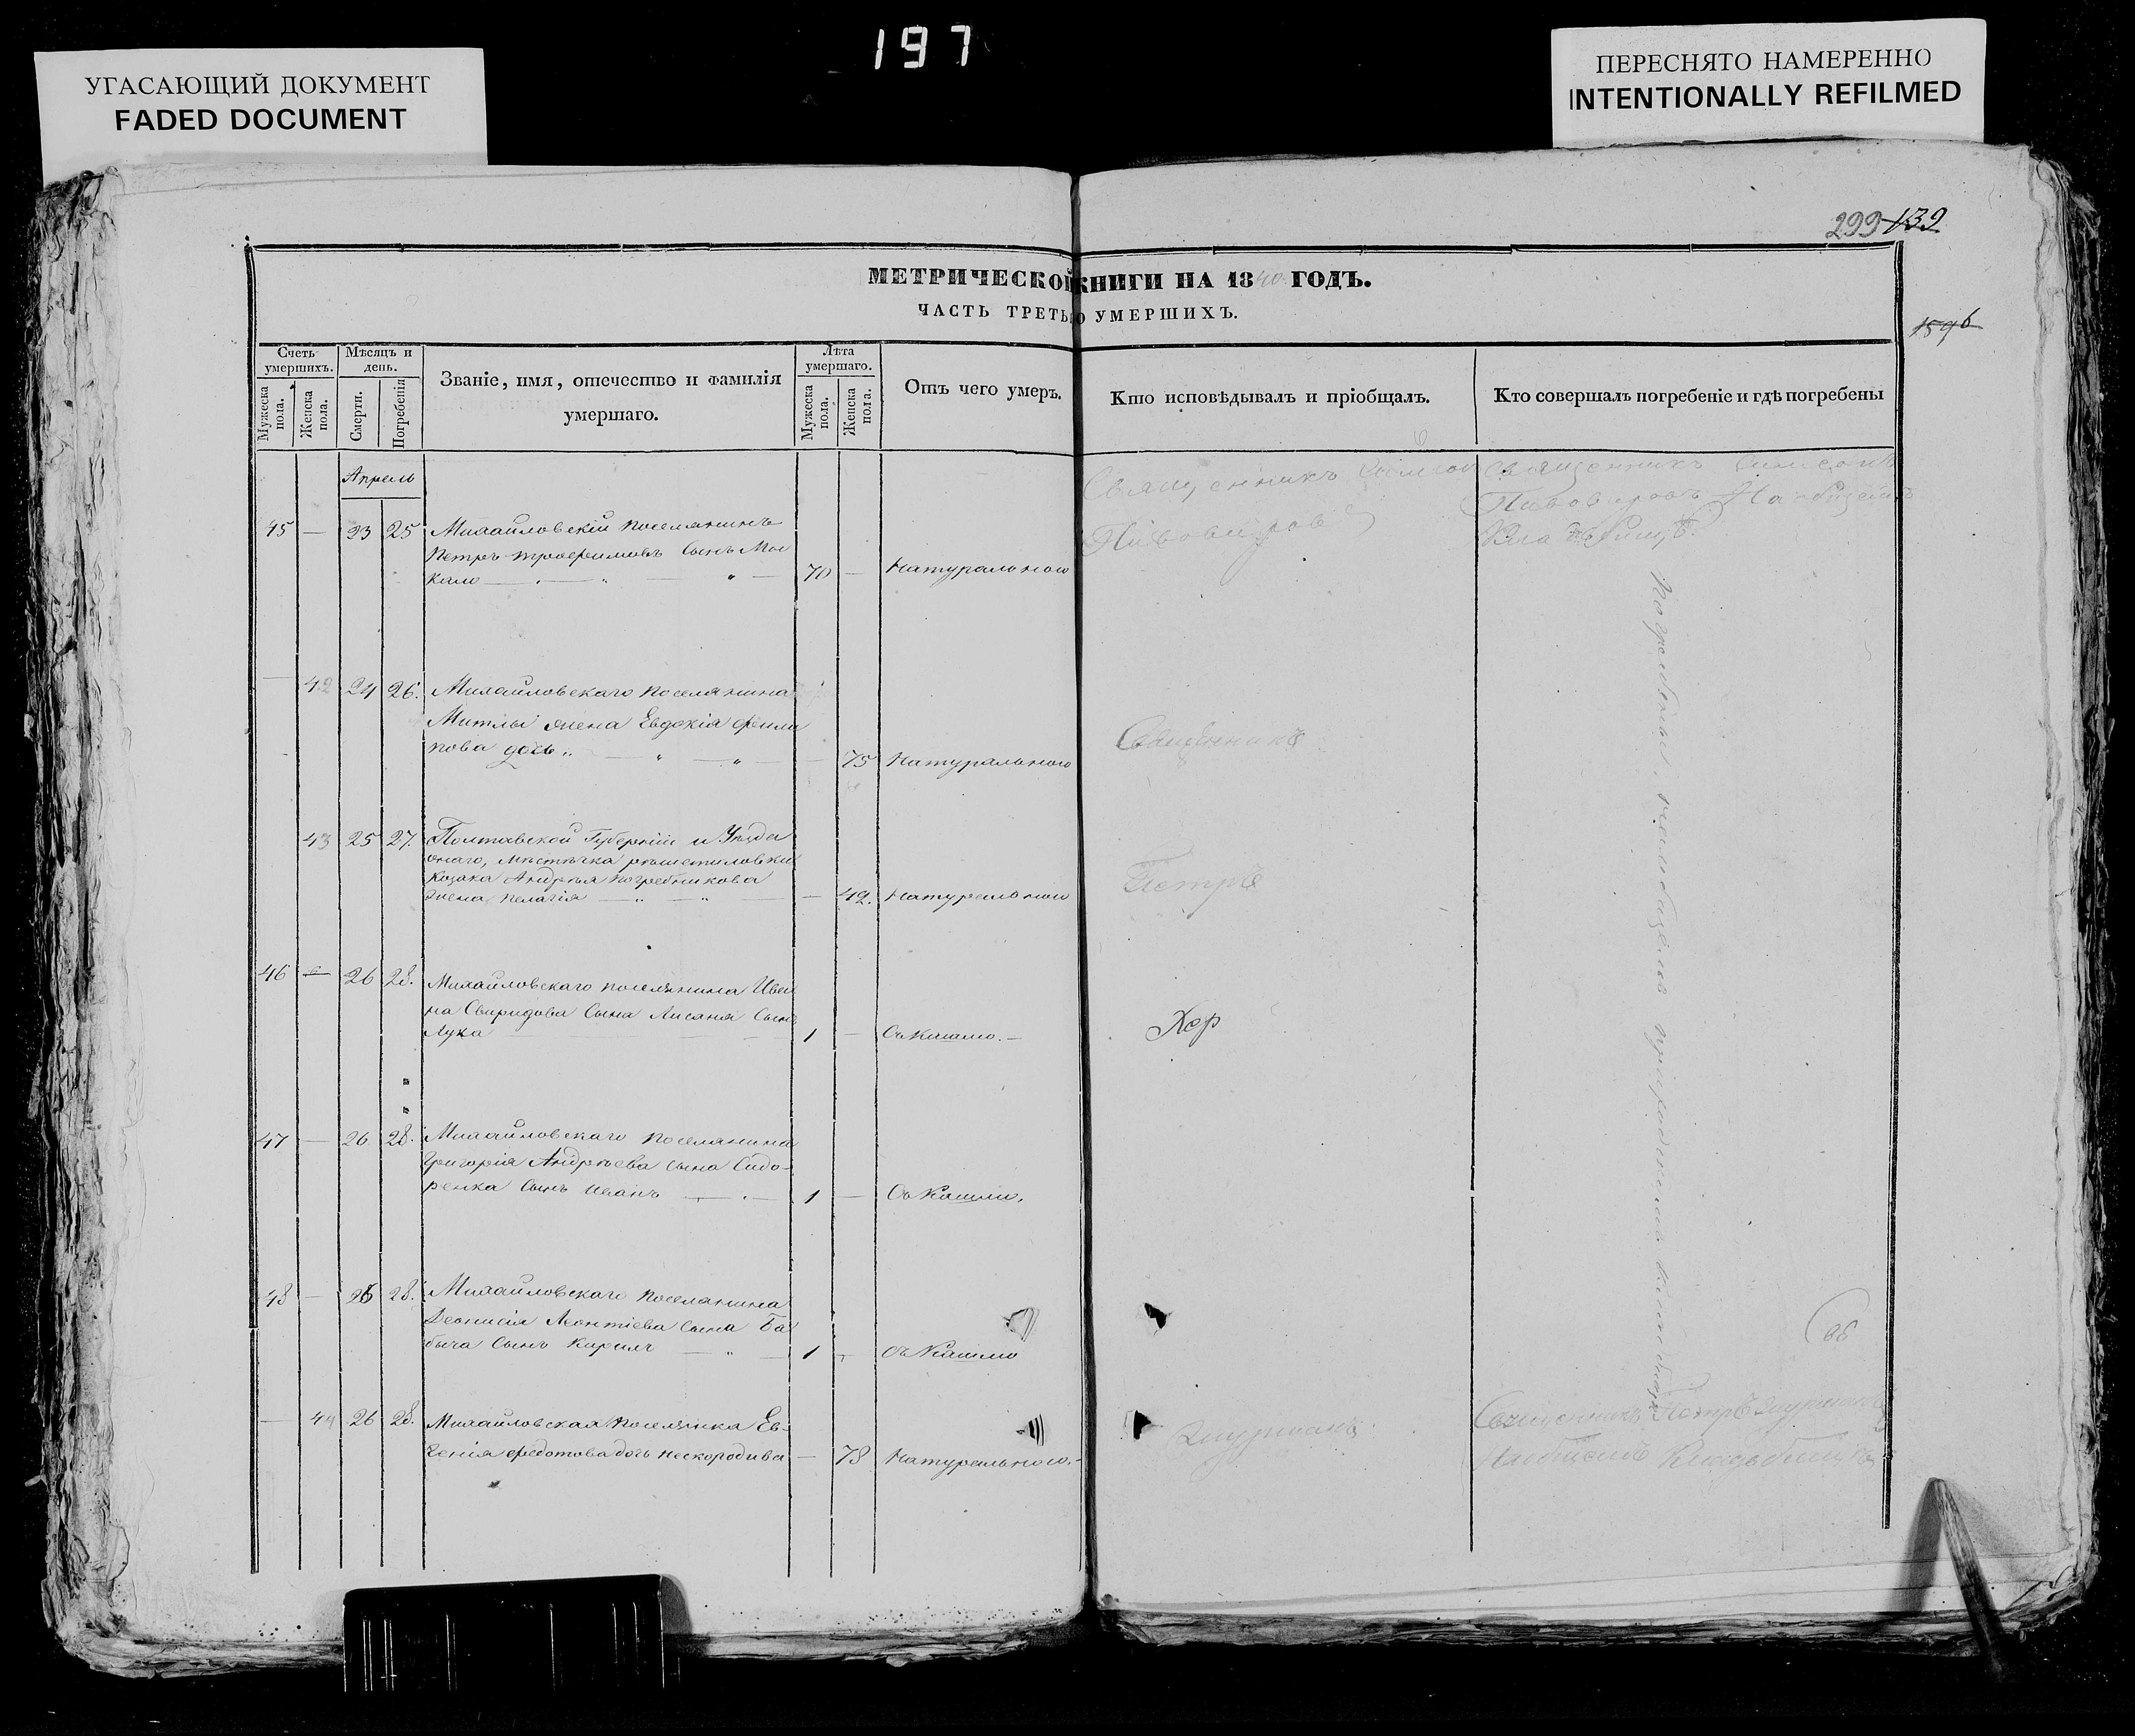 197
УГАСАЮЩИЙ ДОКУМЕНТ
FADED DOCUMENT
ПЕРЕСНЯТО НАМЕРЕННО
INTENTIONALLY REFILMED
299 139
МЕТРИЧЕСКОЙ КНИГИ НА 1840 ГОДЪ.
ЧАСТЬ ТРЕТЬЯ О УМЕРШИХЪ.
Счетъ умершихъ.
Мужеска пола.
Женска пола.
Мѣсяцъ и день.
Смерти.
Погребенія
Званіе, имя, отечество и фамилія умершаго.
Лѣта умершаго.
Мужеска пола.
Женска пола.
Отъ чего умеръ.
Кто исповѣдывалъ и пріобщалъ.
Кто совершалъ погребеніе и гдѣ погребены
Апрель
Священникъ Симеон
Пивоваровъ
Священникъ Симеонъ
Пивоваровъ На общемъ
Кладбищѣ
45 — 23 25 Михайловскій поселянинъ
Петръ Трофимовъ сынъ Мос
кало 70 — Натурально
— 42 24 26. Михайловскаго поселянина
Митлы жена Евдокія Фили
пова дочь — 75 Натурально
Священникъ
43 25 27. Полтавской Губерніи и Уѣзда
онаго, Мѣстѣчка Рѣшетиловки
Козака Андрѣя Погребникова
жена Пелагія — 42. Натурально
Петръ
46 — 26 28. Михайловскаго поселянина Ива
на Свиридова сына Лисаня сынъ
Лука 1 — Съ Кашлю.
Хор
47 — 26 28. Михайловскаго поселянина
Григорія Андрѣева сына Сидо-
ренка сынъ Иванъ 1 — Съ Кашлю.
48 — 26 28. Михайловскаго поселянина
Деонисія Леонтіева сына Ба
быча сынъ Кирилъ 1 Съ Кашлю
— 44 26 28. Михайловская поселянка Ев-
генія Федотова дочь Нескородива — 78 Натурально.
Священникъ Петръ
На общемъ Кладбищѣ